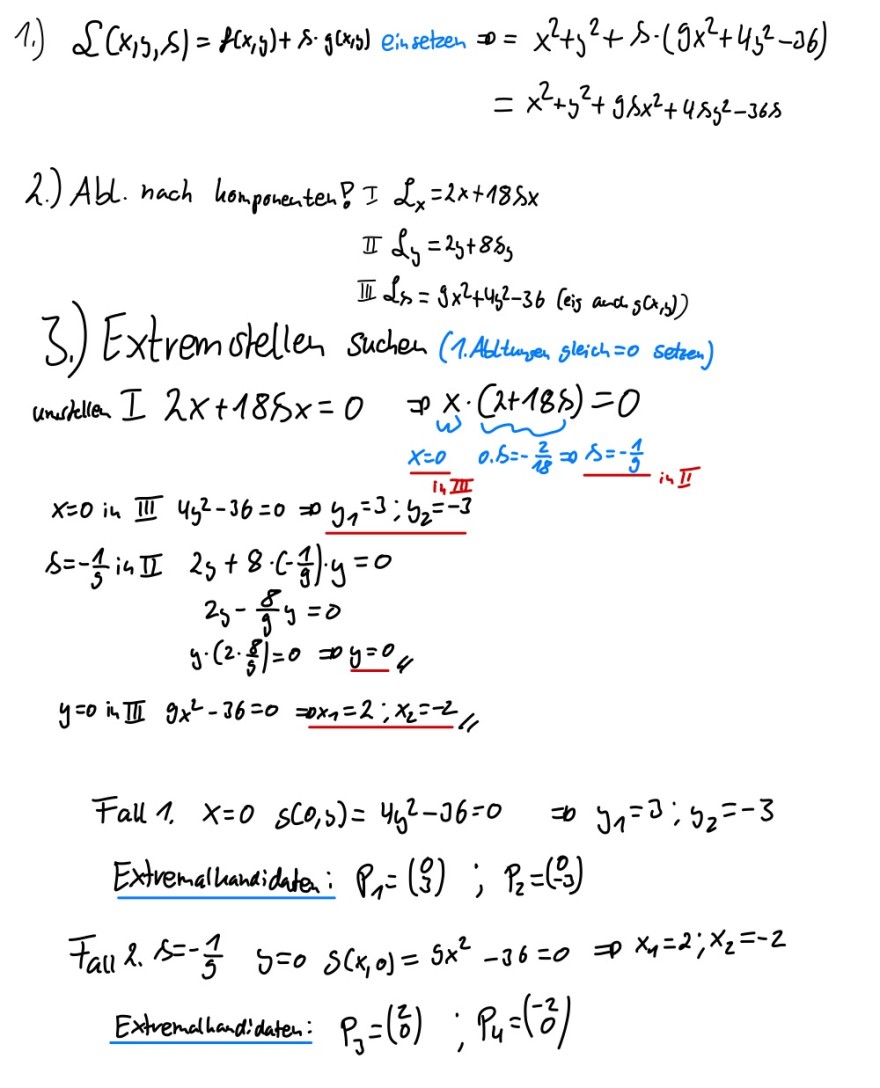 1.) L(x,y,s) = f(x,y) + s · g(x,y) einsetzen ⇒ = x²+y² + s·(9x²+4y²-36)
= x²+y²+9sx²+4sy²-36s
2.) Abl. nach komponenten! I Lx = 2x+18sx
II Ly = 2y+8sy
III Ls = 9x²+4y²-36 (eig auch g(x,y))
3.) Extremstellen suchen (1. Abltungen gleich=0 setzen)
umstellen I 2x+18sx = 0 ⇒ x · (2+18s) = 0
x=0 o. s=-2/18 ⇒ s=-1/9 in II
in III
x=0 in III 4y²-36=0 ⇒ y₁=3 ; y₂=-3
s=-1/9 in II 2y + 8·(-1/9)·y = 0
2y - 8/9 y = 0
y·(2·8/9)=0 ⇒ y=0
y=0 in III 9x²-36=0 ⇒ x₁=2 ; x₂=-2
Fall 1. x=0 g(0,y) = 4y²-36=0 ⇒ y₁=3 ; y₂=-3
Extremalkandidaten: P₁=(0 3) ; P₂=(0 -3)
Fall 2. s=-1/9 y=0 g(x,0) = 9x² -36=0 ⇒ x₁=2 ; x₂=-2
Extremalkandidaten: P₃=(2 0) ; P₄=(-2 0)